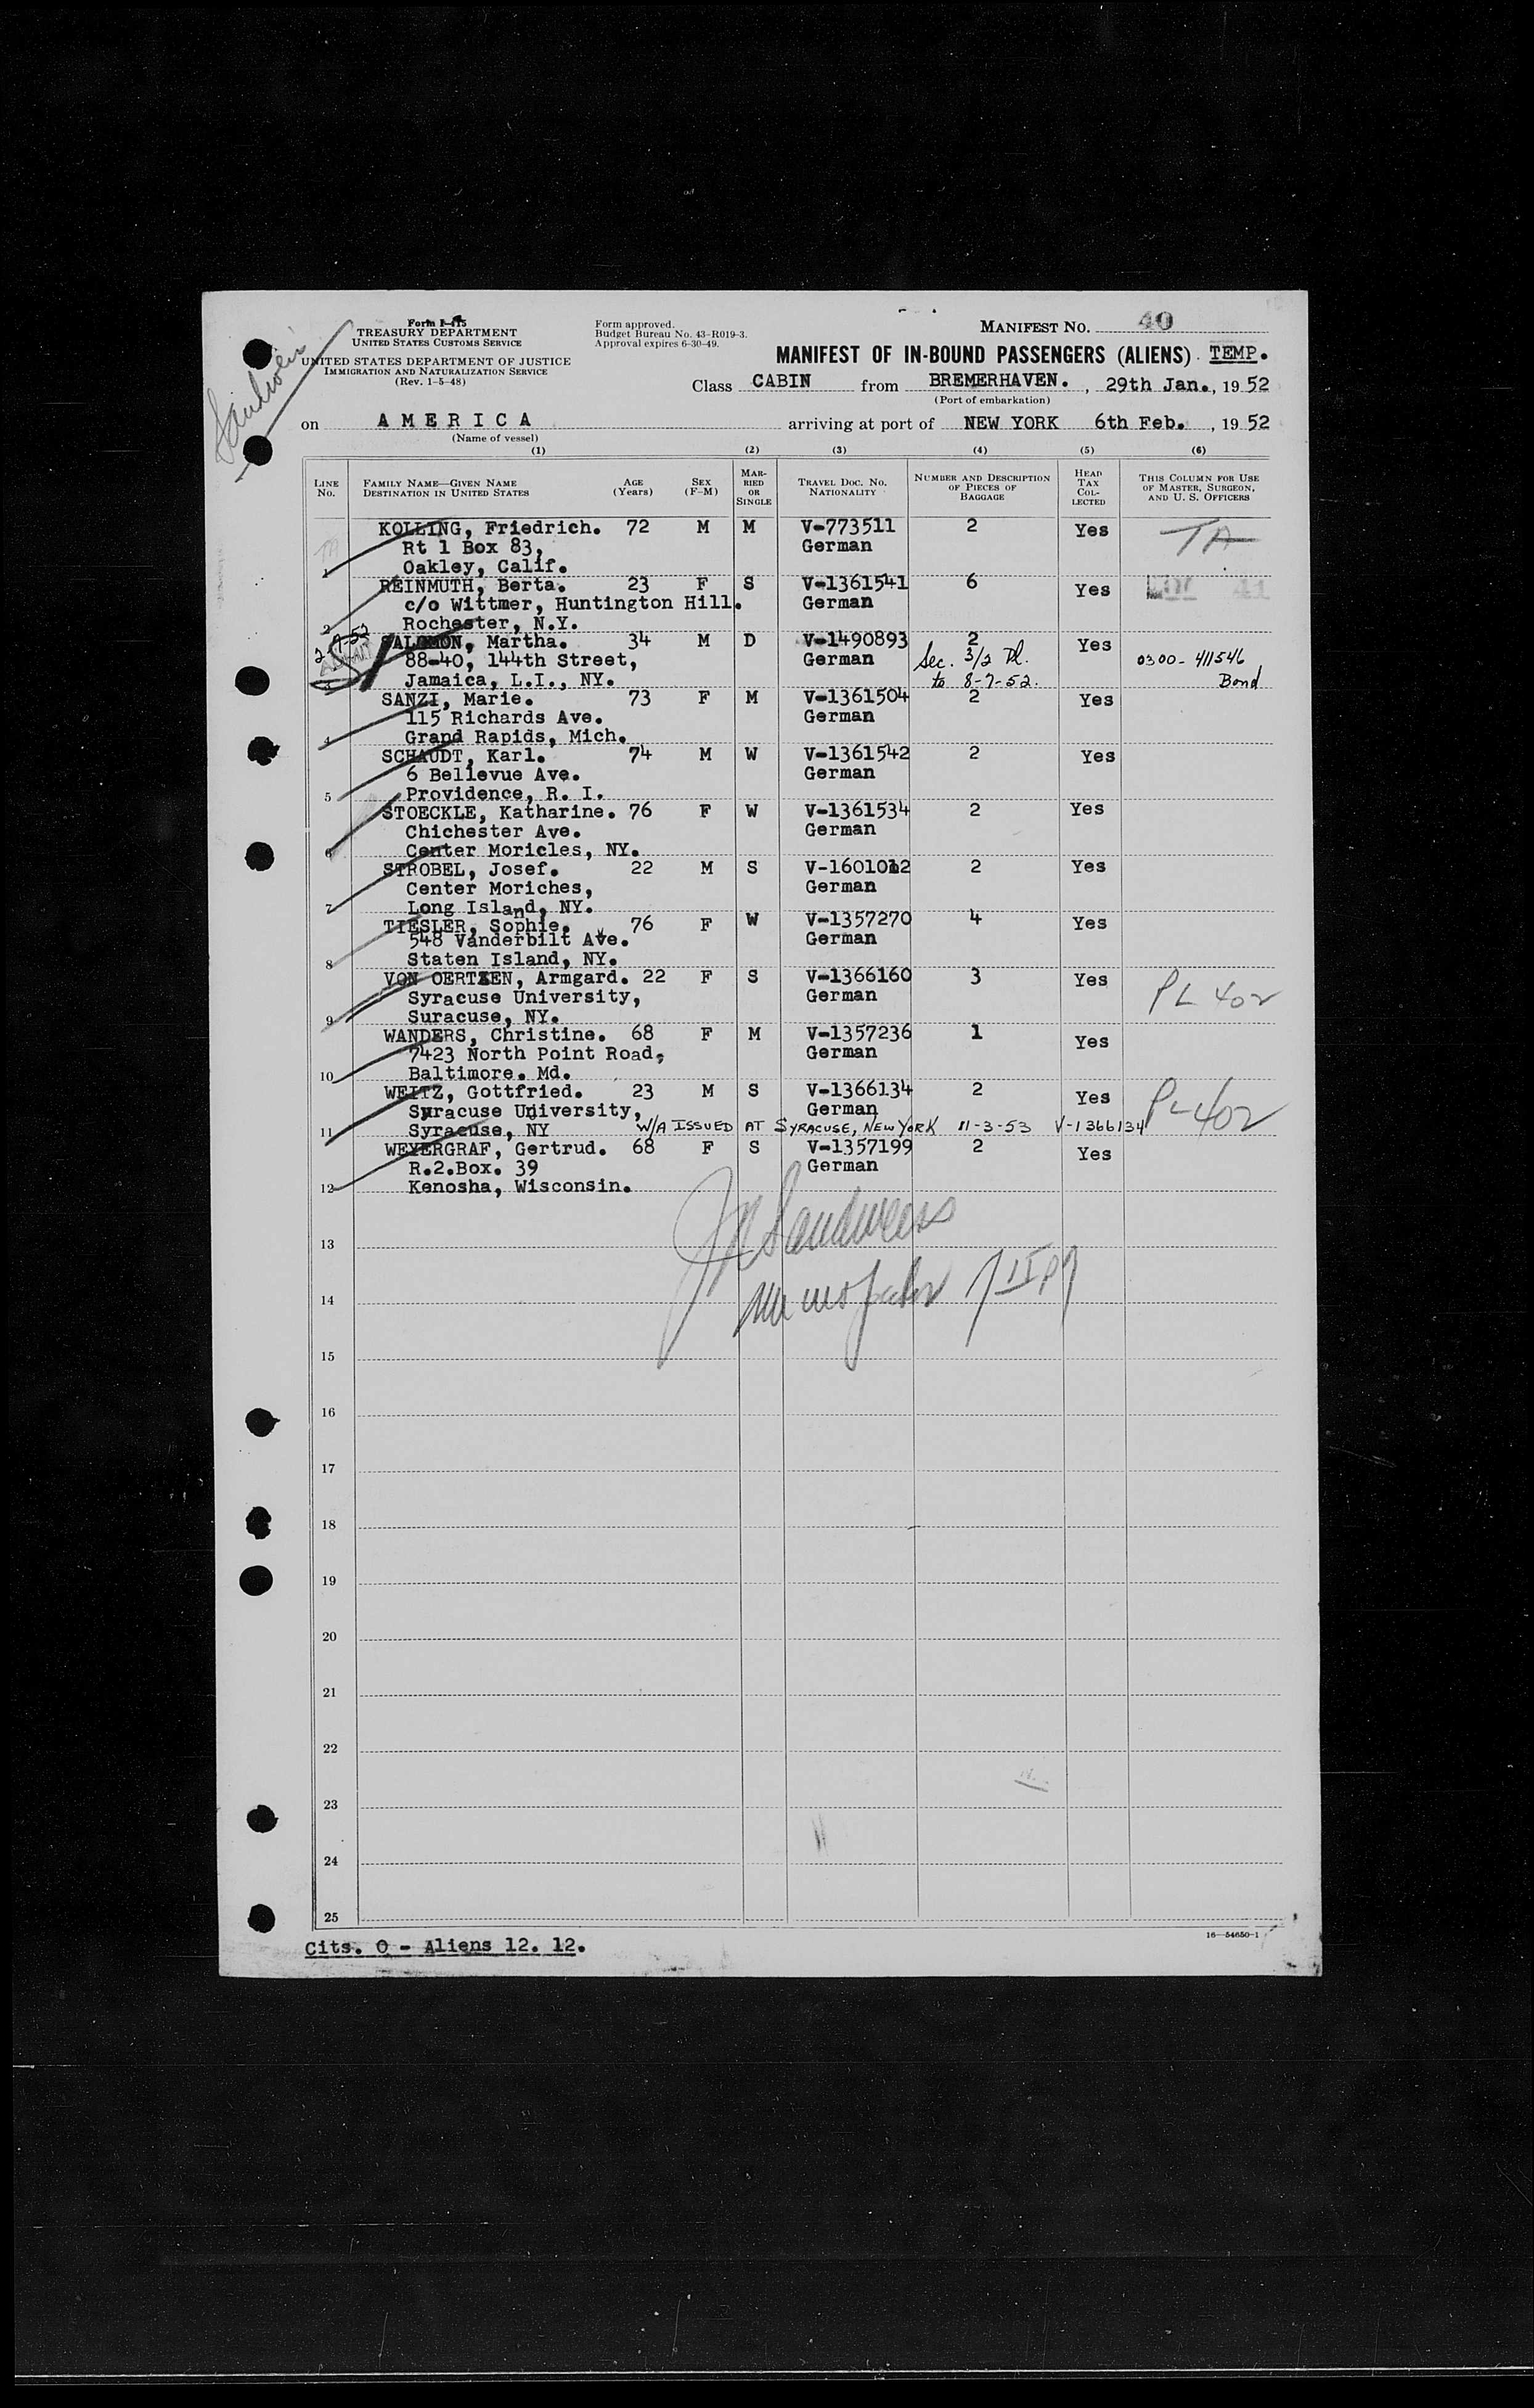 Form I-415
TREASURY DEPARTMENT
UNITED STATES CUSTOMS SERVICE
UNITED STATES DEPARTMENT OF JUSTICE
IMMIGRATION AND NATURALIZATION SERVICE
(Rev. 1-5-48)
Form approved.
Budget Bureau No. 43-R019-3.
Approval expires 6-30-49.
MANIFEST NO. 40
MANIFEST OF IN-BOUND PASSENGERS (ALIENS) TEMP.
Class CABIN from BREMERHAVEN. , 29th Jan., 19 52
(Port of embarkation)
on AMERICA arriving at port of NEW YORK 6th Feb. , 19 52
(Name of vessel)
(1) (2) (3) (4) (5) (6)
LINE NO. FAMILY NAME—GIVEN NAME DESTINATION IN UNITED STATES AGE (Years) SEX (F-M) MARRIED OR SINGLE TRAVEL DOC. NO. NATIONALITY NUMBER AND DESCRIPTION OF PIECES OF BAGGAGE HEAD TAX COLLECTED THIS COLUMN FOR USE OF MASTER, SURGEON, AND U. S. OFFICERS
KOLLING, Friedrich. 72 M M V-773511 2 Yes TA
Rt 1 Box 83, German
1 Oakley, Calif.
REINMUTH, Berta. 23 F S V-1361541 6 Yes
c/o Wittmer, Huntington Hill. German
2 Rochester, N.Y.
SALOMON, Martha. 34 M D V-1490893 2 Yes
88-40, 144th Street, German Sec. 3/2 Pl. 0300-411546
3 Jamaica, L.I., NY. to 8-7-52. Bond
SANZI, Marie. 73 F M V-1361504 2 Yes
115 Richards Ave. German
4 Grand Rapids, Mich.
SCHAUDT, Karl. 74 M W V-1361542 2 Yes
6 Bellevue Ave. German
5 Providence, R. I.
STOECKLE, Katharine. 76 F W V-1361534 2 Yes
Chichester Ave. German
6 Center Moricles, NY.
STROBEL, Josef. 22 M S V-1601012 2 Yes
Center Moriches, German
7 Long Island, NY.
TIESLER, Sophie. 76 F W V-1357270 4 Yes
548 Vanderbilt Ave. German
8 Staten Island, NY.
VON OERTZEN, Armgard. 22 F S V-1366160 3 Yes PL 402
Syracuse University, German
9 Suracuse, NY.
WANDERS, Christine. 68 F M V-1357236 1 Yes
7423 North Point Road, German
10 Baltimore. Md.
WEITZ, Gottfried. 23 M S V-1366134 2 Yes PL 402
Syracuse University, German
11 Syracuse, NY W/A ISSUED AT SYRACUSE, NEW YORK 11-3-53 V-1366134
WEYERGRAF, Gertrud. 68 F S V-1357199 2 Yes
R.2.Box. 39 German
12 Kenosha, Wisconsin.
13
14
15
16
17
18
19
20
21
22
23
24
25
16—54650-1
Cits. 0 - Aliens 12. 12.